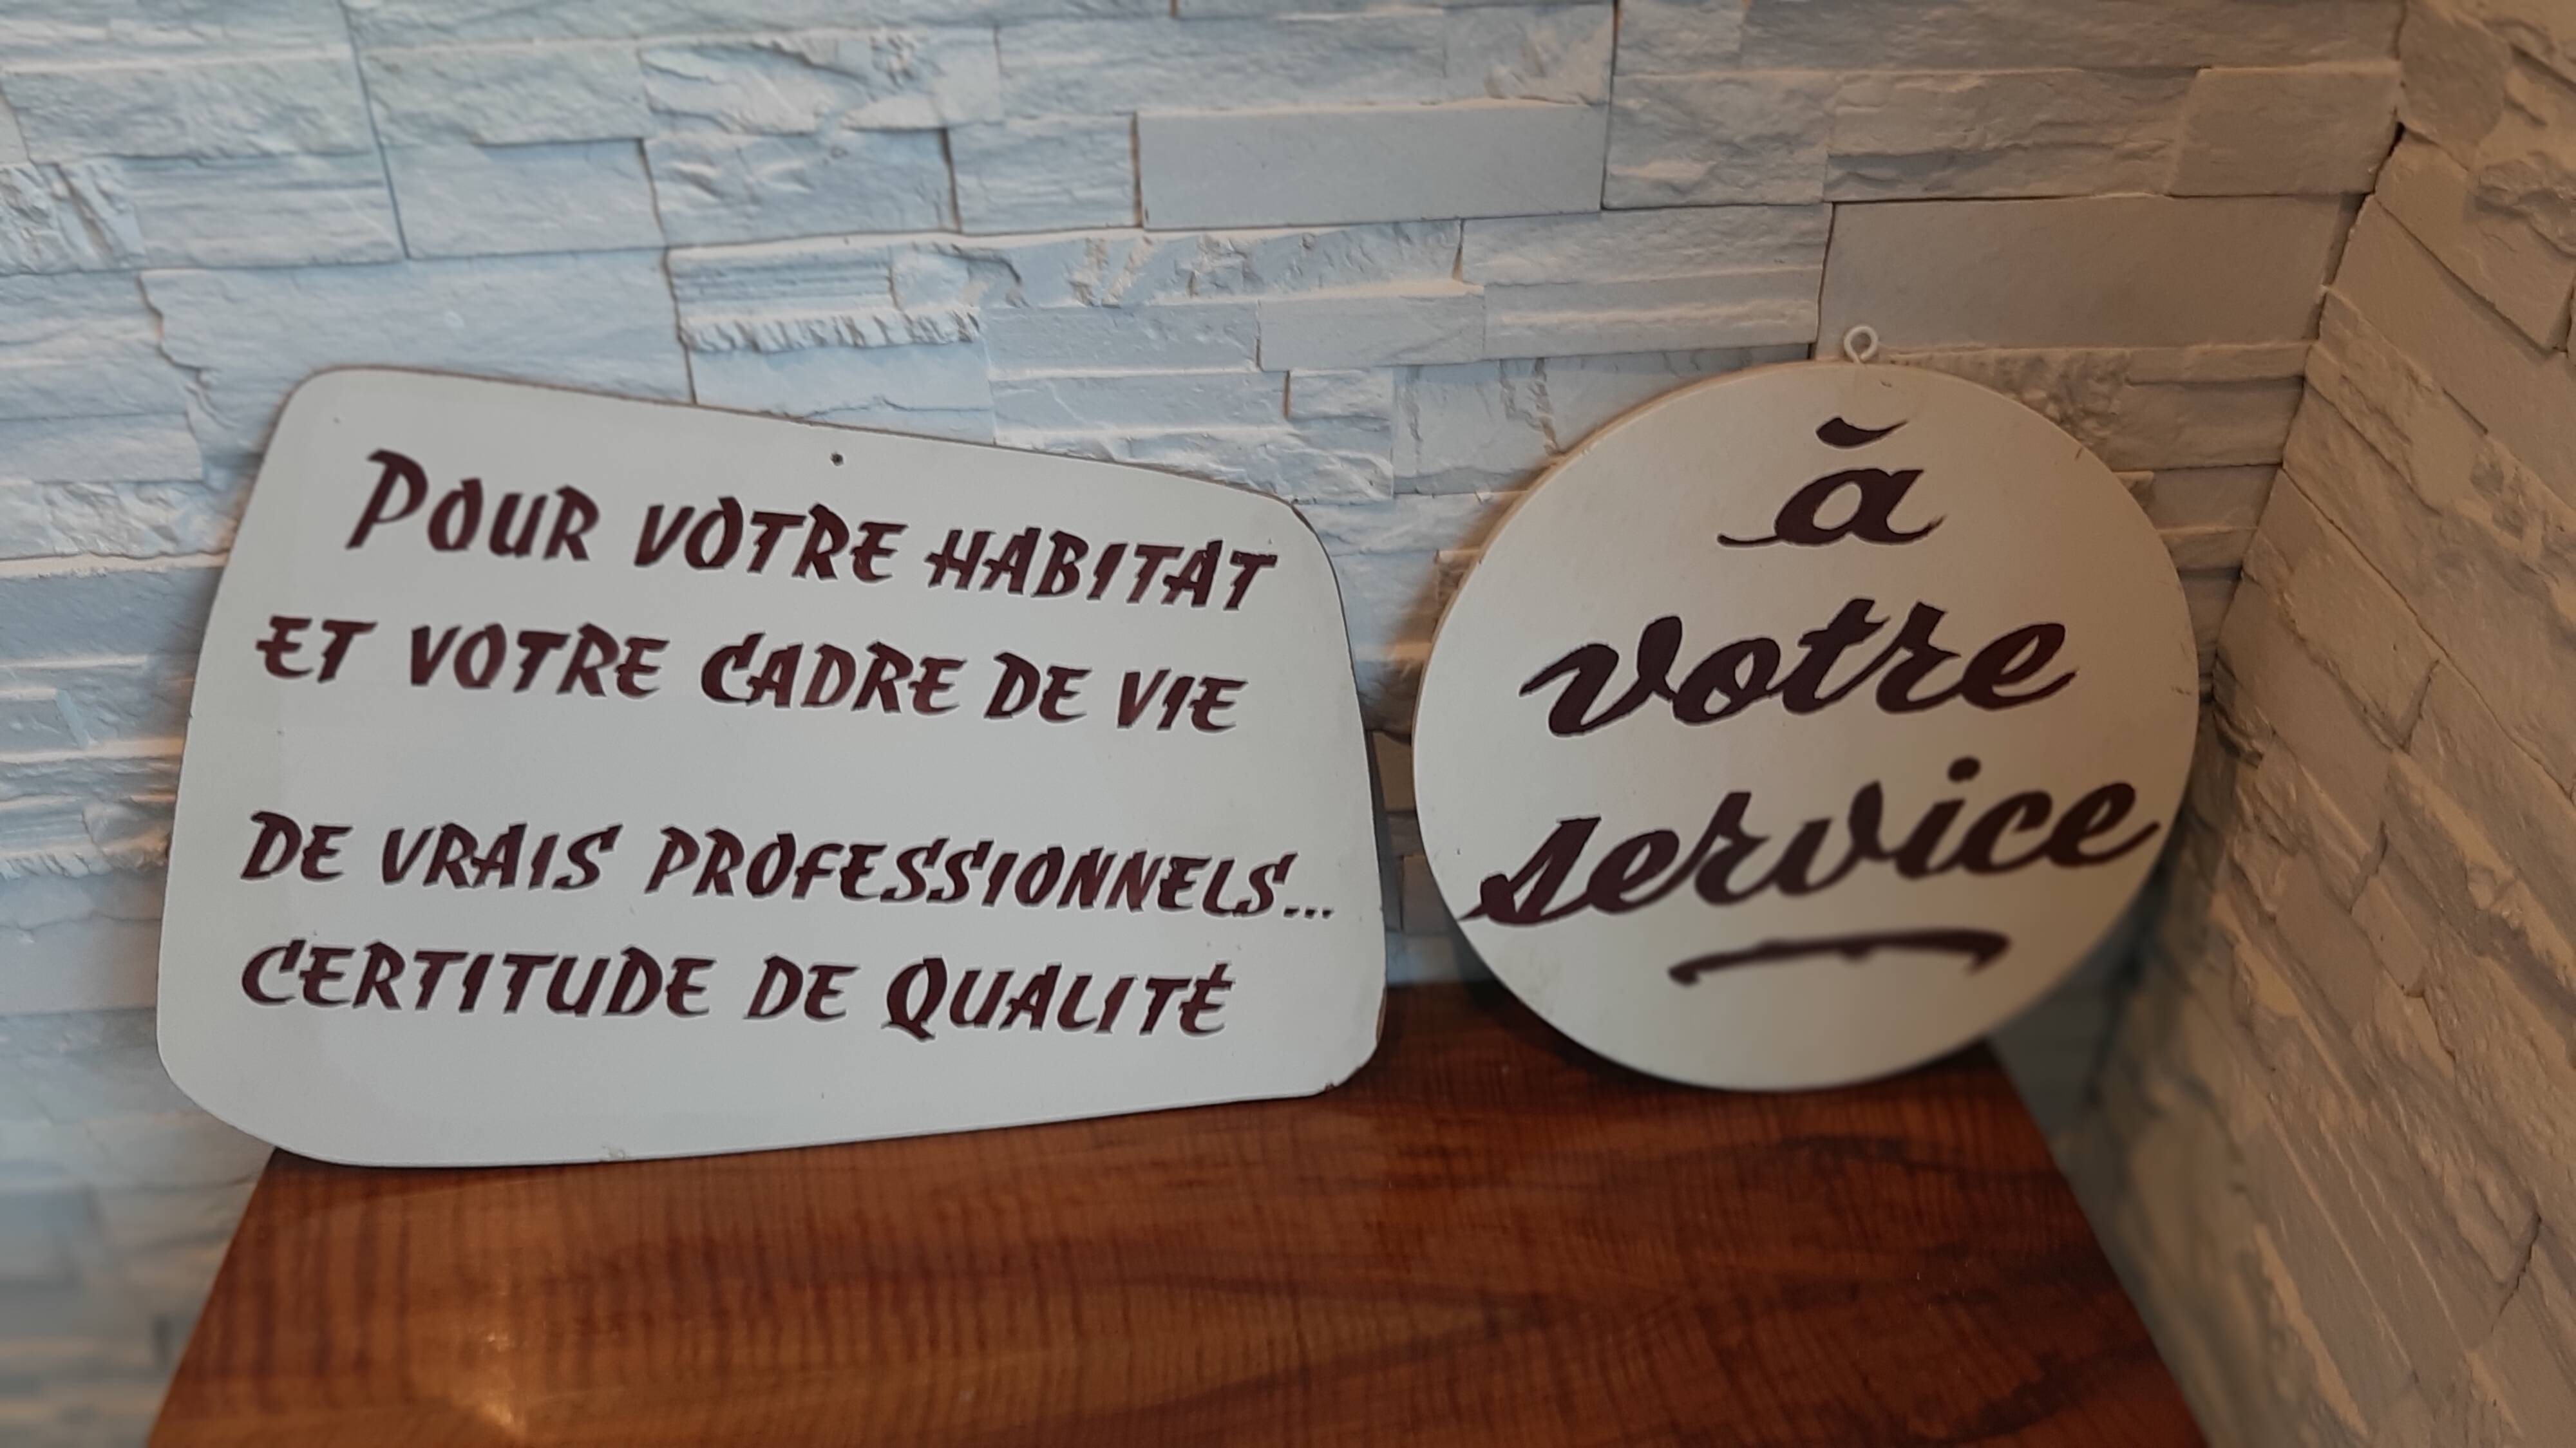 POUR VOTRE HABITAT
ET VOTRE CADRE DE VIE
DE VRAIS PROFESSIONNELS...
CERTITUDE DE QUALITÉ
à
votre
service